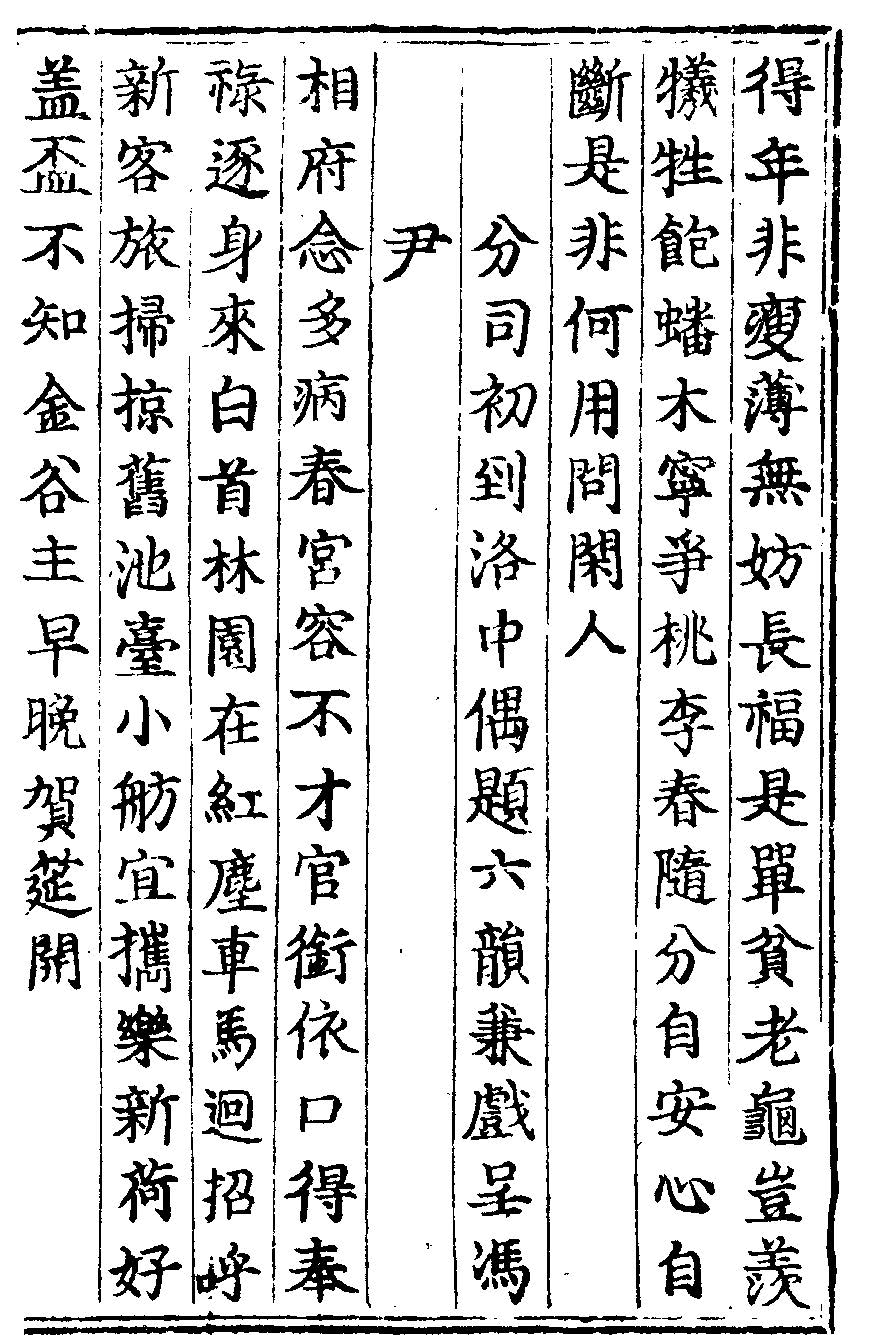 得年非瘦薄無妨長福是單貧老龜豈羨
犧牲飽蟠木寧爭桃李春隨分自安心自
斷是非何用問閑人
分司初到洛中偶題六韻兼戲呈馮
尹
相府念多病春宮容不才官銜依口得奉
祿逐身來白首林園在紅塵車馬迴招呼
新客旅掃掠舊池臺小舫宜攜樂新荷好
蓋盃不知金谷主早晚賀莚開